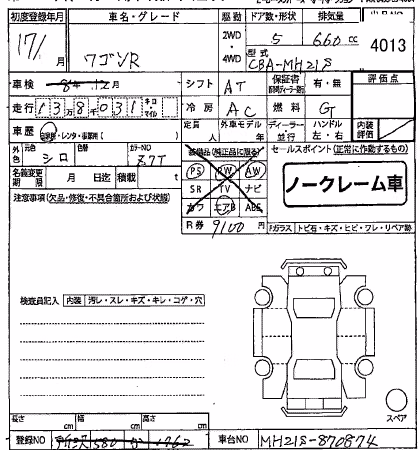 初度登録年月 車名・グレード 駆動 ドア数・形状 排気量
17/ 月 ワゴンR 2WD・4WD 5 660 cc 4013
型式 CBA-MH21S
車検 8年 12月 シフト AT 保証書 有・無 評価点
走行 138031 キロ・マイル 冷房 AC 燃料 G
車歴 自家・レンタ・事務所( ) 定員 人 外車モデル 年 ディーラー・並行 ハンドル 左・右 内装評価
外元色 シロ 色替 カラーNO Z7T 装備品(純正品に限る) セールスポイント(正常に作動するもの)
名義変更期限 月 日迄 積載 t PS PW AW
SR TV ナビ ノークレーム車
注意事項(欠品・修復・不具合箇所および状態) カワ エアB ABS
R券 9100円 Fガラス トビ石・キズ・ヒビ・ワレ・リペア跡
検査員記入 内装 汚レ・スレ・キズ・キレ・コゲ・穴
スペア
長さ cm 幅 cm 高さ cm
登録NO 580 1762 車台NO MH21S-870874